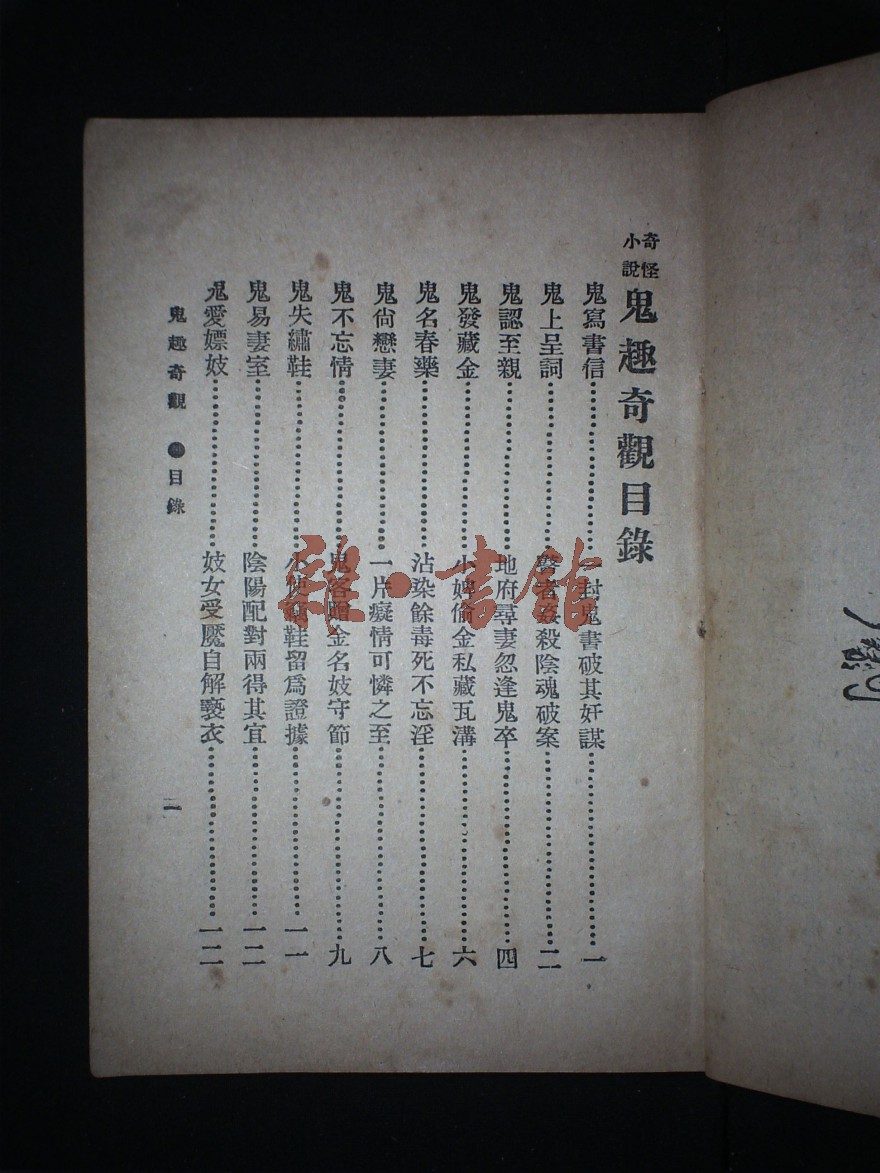 奇怪小說 鬼趣奇觀目錄
鬼寫書信…………一封鬼書破其奸謀…………一
鬼上呈詞…………醫者姦殺陰魂破案…………二
鬼認至親…………地府尋妻忽逢鬼卒…………四
鬼發藏金…………小婢偷金私藏瓦溝…………六
鬼名春藥…………沾染餘毒死不忘淫…………七
鬼尙戀妻…………一片癡情可憐之至…………八
鬼不忘情…………鬼客贈金名妓守節…………九
鬼失繡鞋…………小使竊鞋留爲證據…………一一
鬼易妻室…………陰陽配對兩得其宜…………一二
鬼愛嫖妓…………妓女受魘自解褻衣…………一二
鬼趣奇觀 ◉目錄
雜·書館